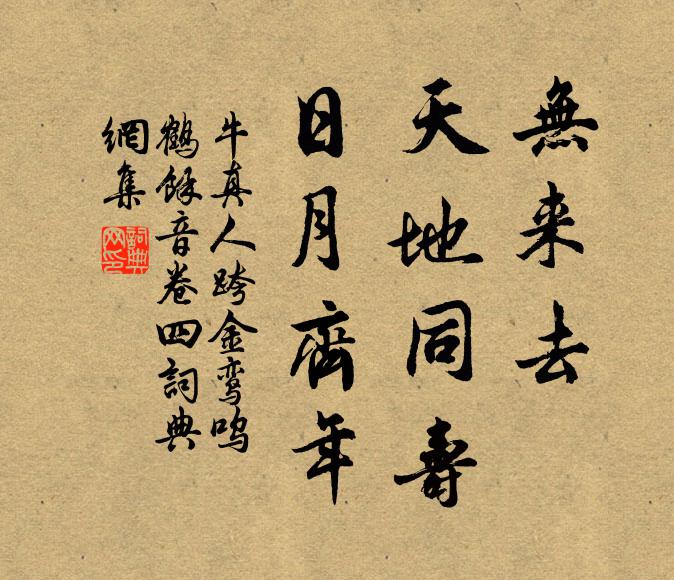 無来去
天地同壽
日月齊年
牛真人跨金鸾鸣
鶴餘音卷四詞典
網集
詞典网印